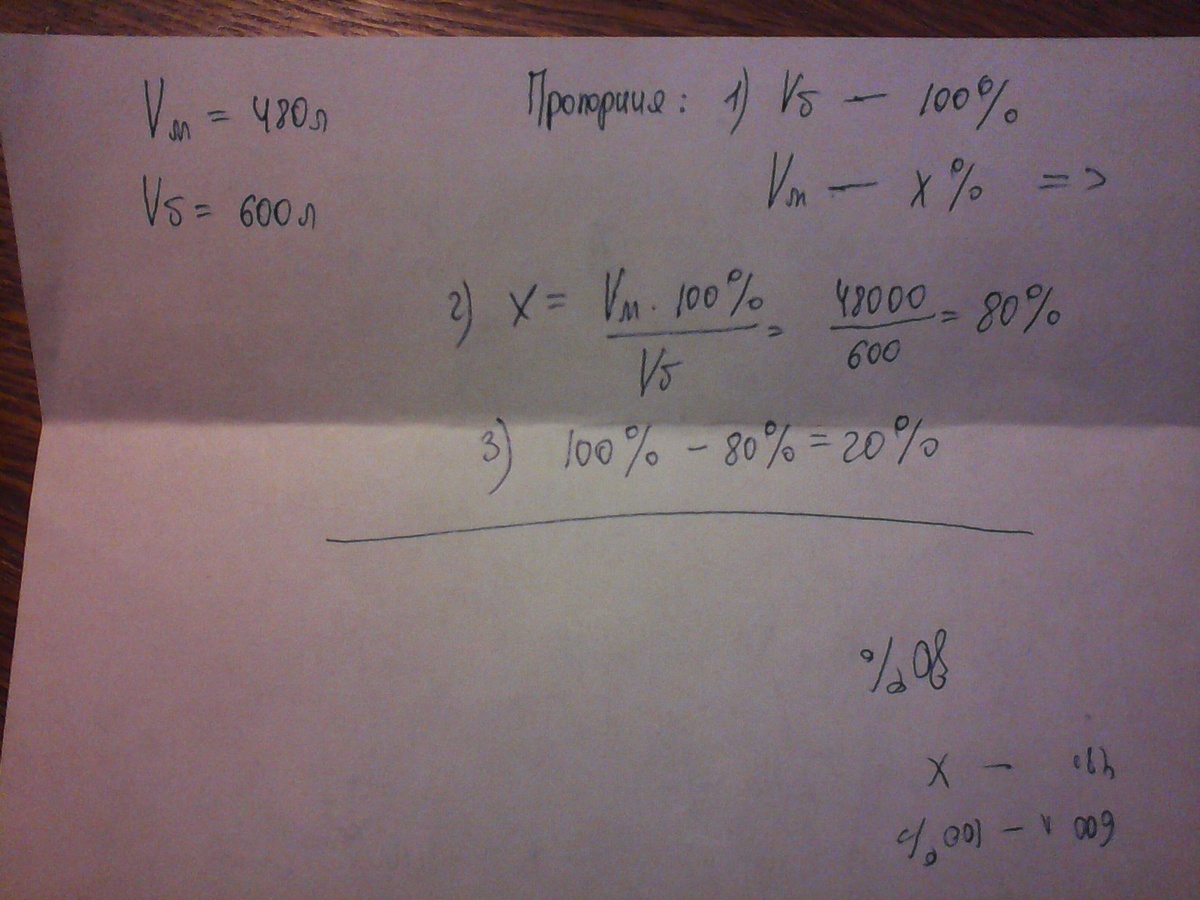 Vм = 480л
Vб = 600л
Пропорция: 1) Vб — 100%
Vм — x% =>
2) x = Vм · 100% / Vб = 48000 / 600 = 80%
3) 100% - 80% = 20%
600 л - 100%
480 - x
80%